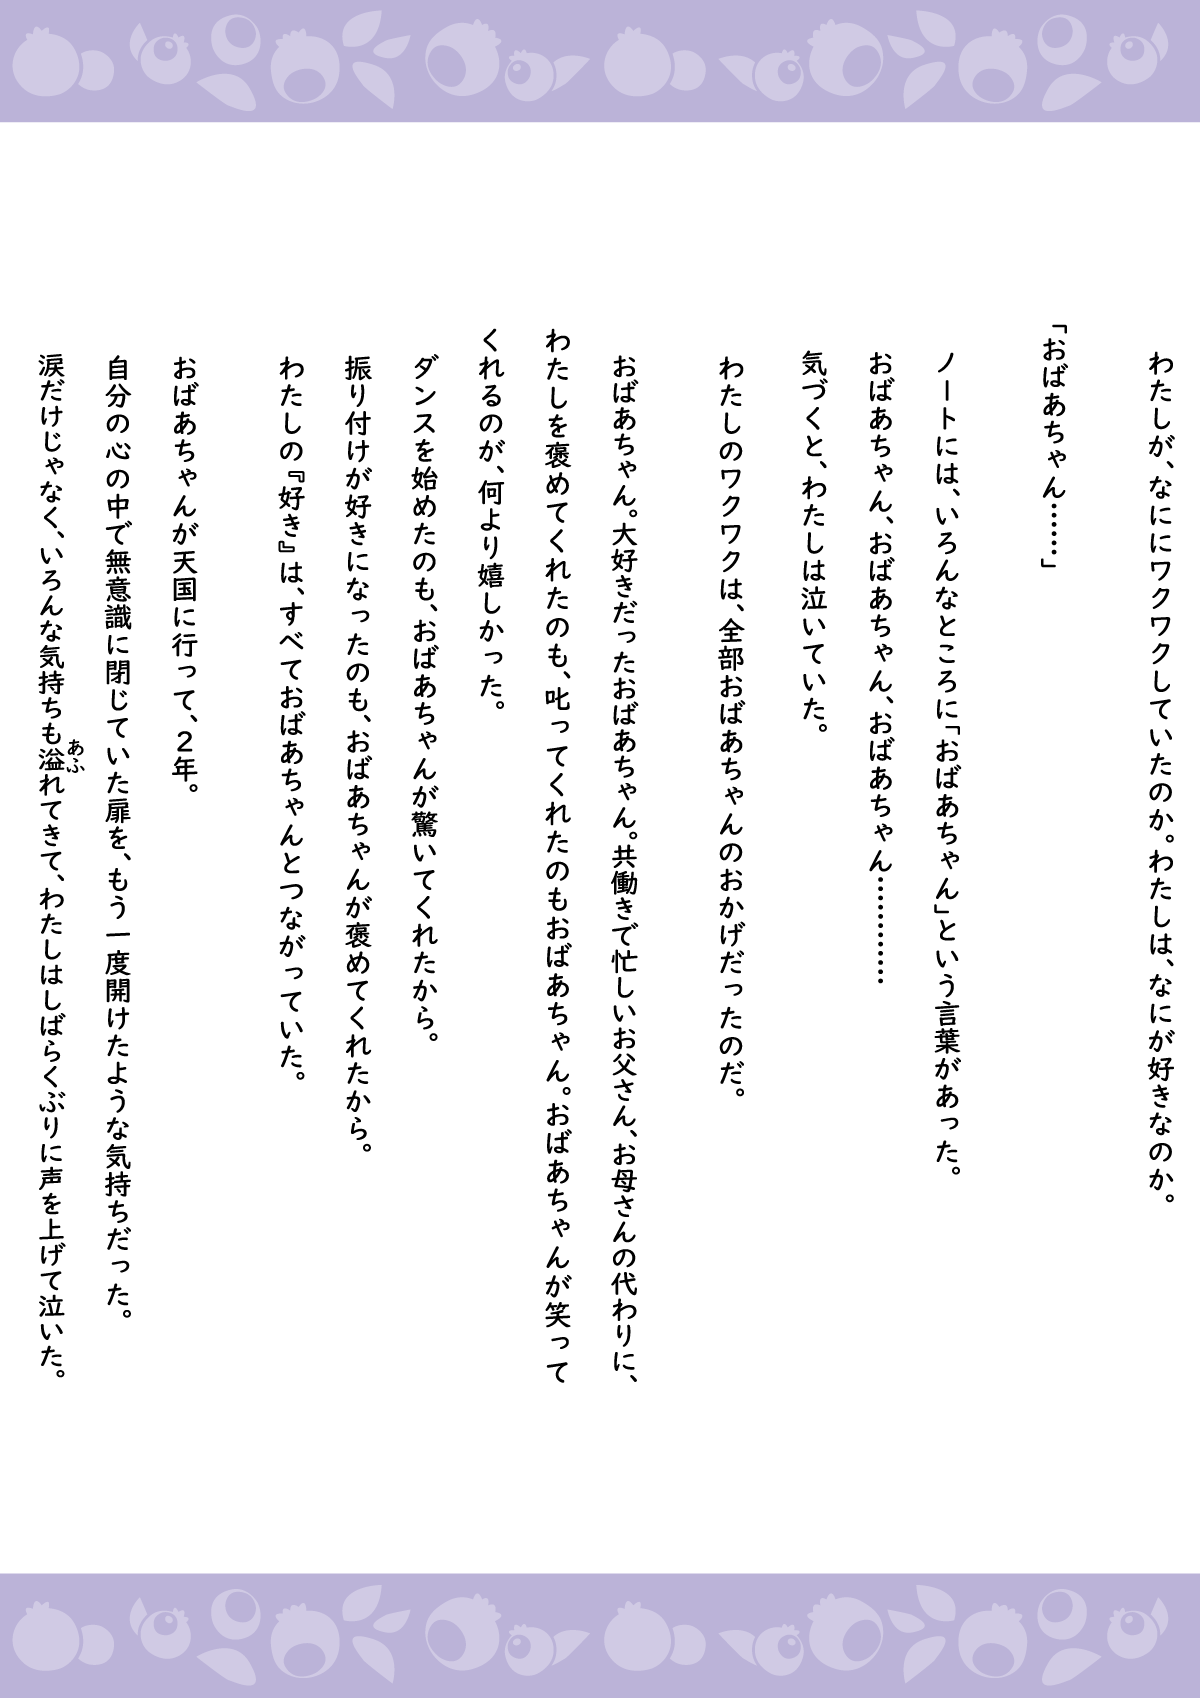 わたしが、なににワクワクしていたのか。わたしは、なにが好きなのか。
「おばあちゃん……」
ノートには、いろんなところに「おばあちゃん」という言葉があった。
おばあちゃん、おばあちゃん、おばあちゃん…………
気づくと、わたしは泣いていた。
わたしのワクワクは、全部おばあちゃんのおかげだったのだ。
おばあちゃん。大好きだったおばあちゃん。共働きで忙しいお父さん、お母さんの代わりに、
わたしを褒めてくれたのも、叱ってくれたのもおばあちゃん。おばあちゃんが笑って
くれるのが、何より嬉しかった。
ダンスを始めたのも、おばあちゃんが驚いてくれたから。
振り付けが好きになったのも、おばあちゃんが褒めてくれたから。
わたしの『好き』は、すべておばあちゃんとつながっていた。
おばあちゃんが天国に行って、2年。
自分の心の中で無意識に閉じていた扉を、もう一度開けたような気持ちだった。
あふ
涙だけじゃなく、いろんな気持ちも溢れてきて、わたしはしばらくぶりに声を上げて泣いた。